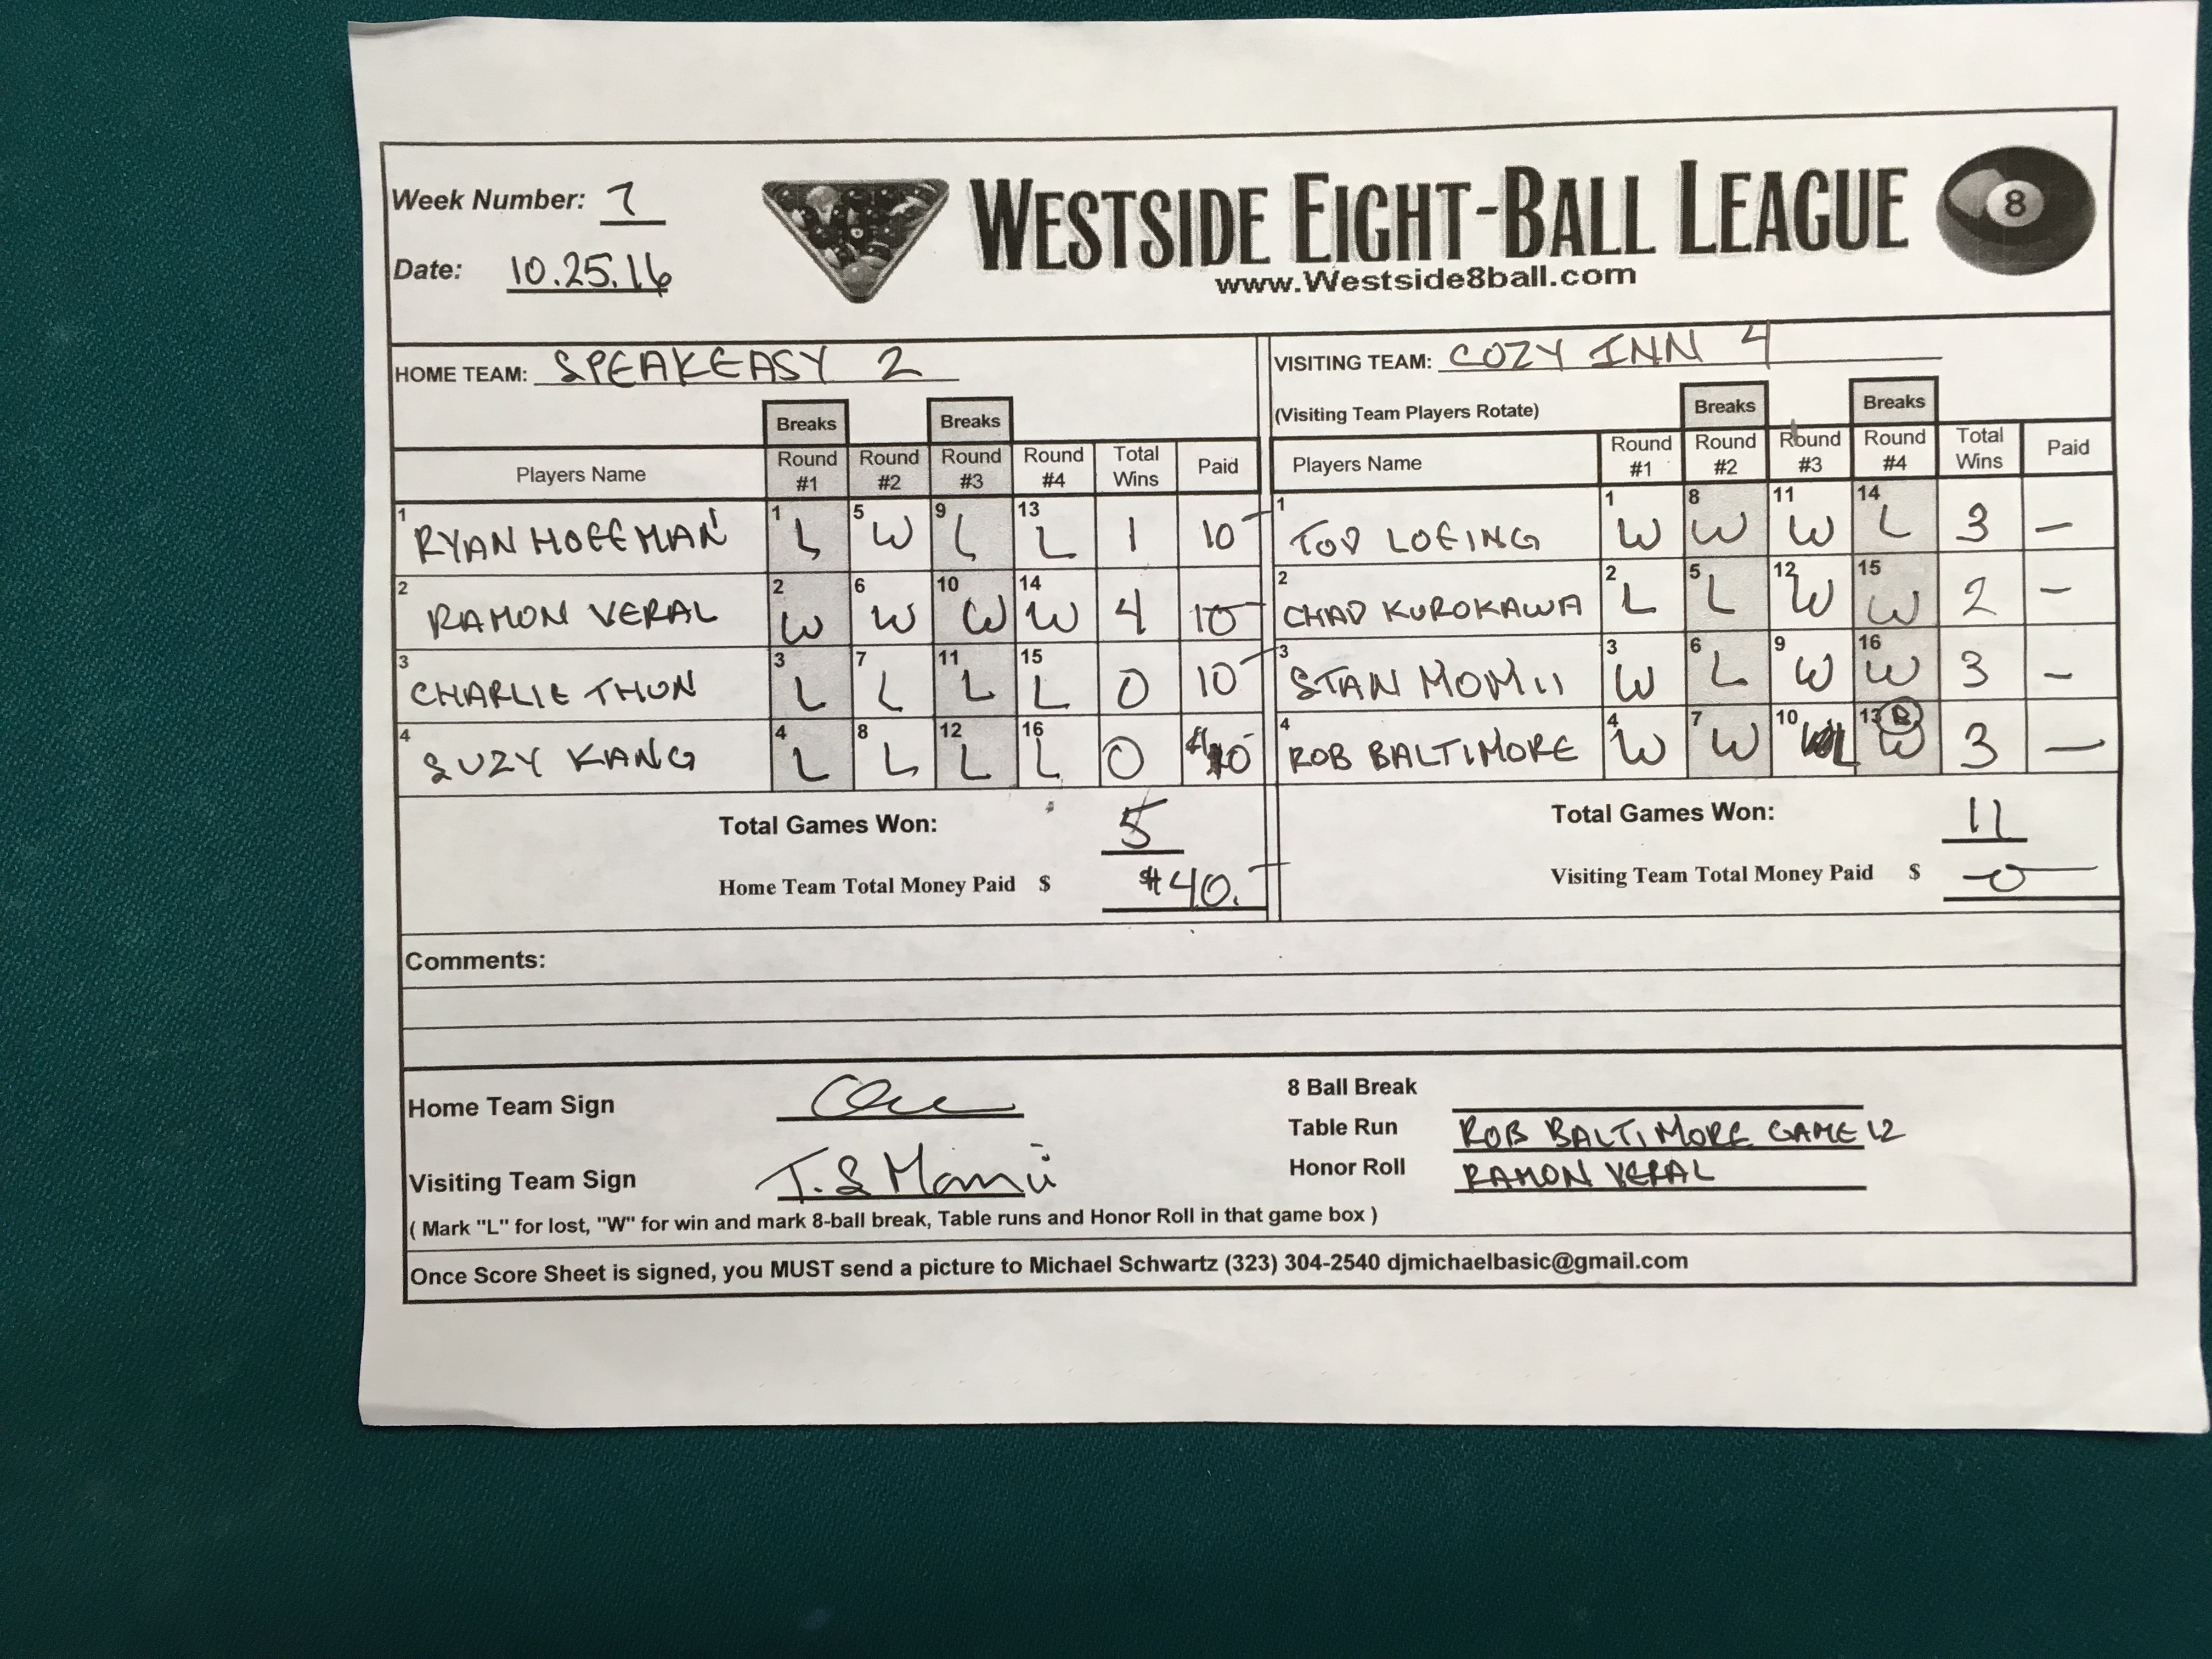 Week Number: 7
WESTSIDE EIGHT-BALL LEAGUE
8
Date: 10.25.16
www.Westside8ball.com
HOME TEAM: SPEAKEASY 2 VISITING TEAM: COZY INN 4
(Visiting Team Players Rotate)
Breaks Breaks Breaks Breaks
Players Name Round #1 Round #2 Round #3 Round #4 Total Wins Paid Players Name Round #1 Round #2 Round #3 Round #4 Total Wins Paid
1 RYAN HOFFMAN 1 L 5 W 9 L 13 L 1 10 1 TOD LOEING 1 W 8 W 11 W 14 L 3 —
2 RAMON VERAL 2 W 6 W 10 W 14 W 4 10 2 CHAD KUROKAWA 2 L 5 L 12 W 15 W 2 —
3 CHARLIE THUN 3 L 7 L 11 L 15 L 0 10 3 STAN MOMII 3 W 6 L 9 W 16 W 3 —
4 SUZY KANG 4 L 8 L 12 L 16 L 0 $10 4 ROB BALTIMORE 4 W 7 W 10 L 13 R W 3 —
Total Games Won: 5 Total Games Won: 11
Home Team Total Money Paid $ $40. Visiting Team Total Money Paid $ -0-
Comments:
Home Team Sign
8 Ball Break
Table Run ROB BALTIMORE GAME 12
Honor Roll RAMON VERAL
Visiting Team Sign T. S Momii
( Mark "L" for lost, "W" for win and mark 8-ball break, Table runs and Honor Roll in that game box )
Once Score Sheet is signed, you MUST send a picture to Michael Schwartz (323) 304-2540 djmichaelbasic@gmail.com